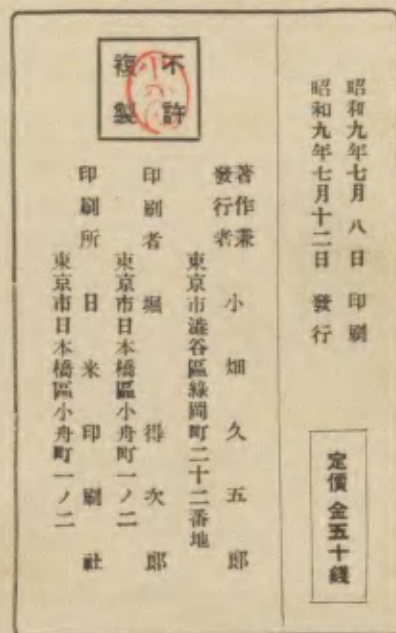 昭和九年七月八日印刷
昭和九年七月十二日發行
定價金五十錢
不許
複製
著作兼
發行者 小畑久五郎
東京市澁谷區綠岡町二十二番地
印刷者 堀得次郎
東京市日本橋區小舟町一ノ二
印刷所 日米印刷社
東京市日本橋區小舟町一ノ二